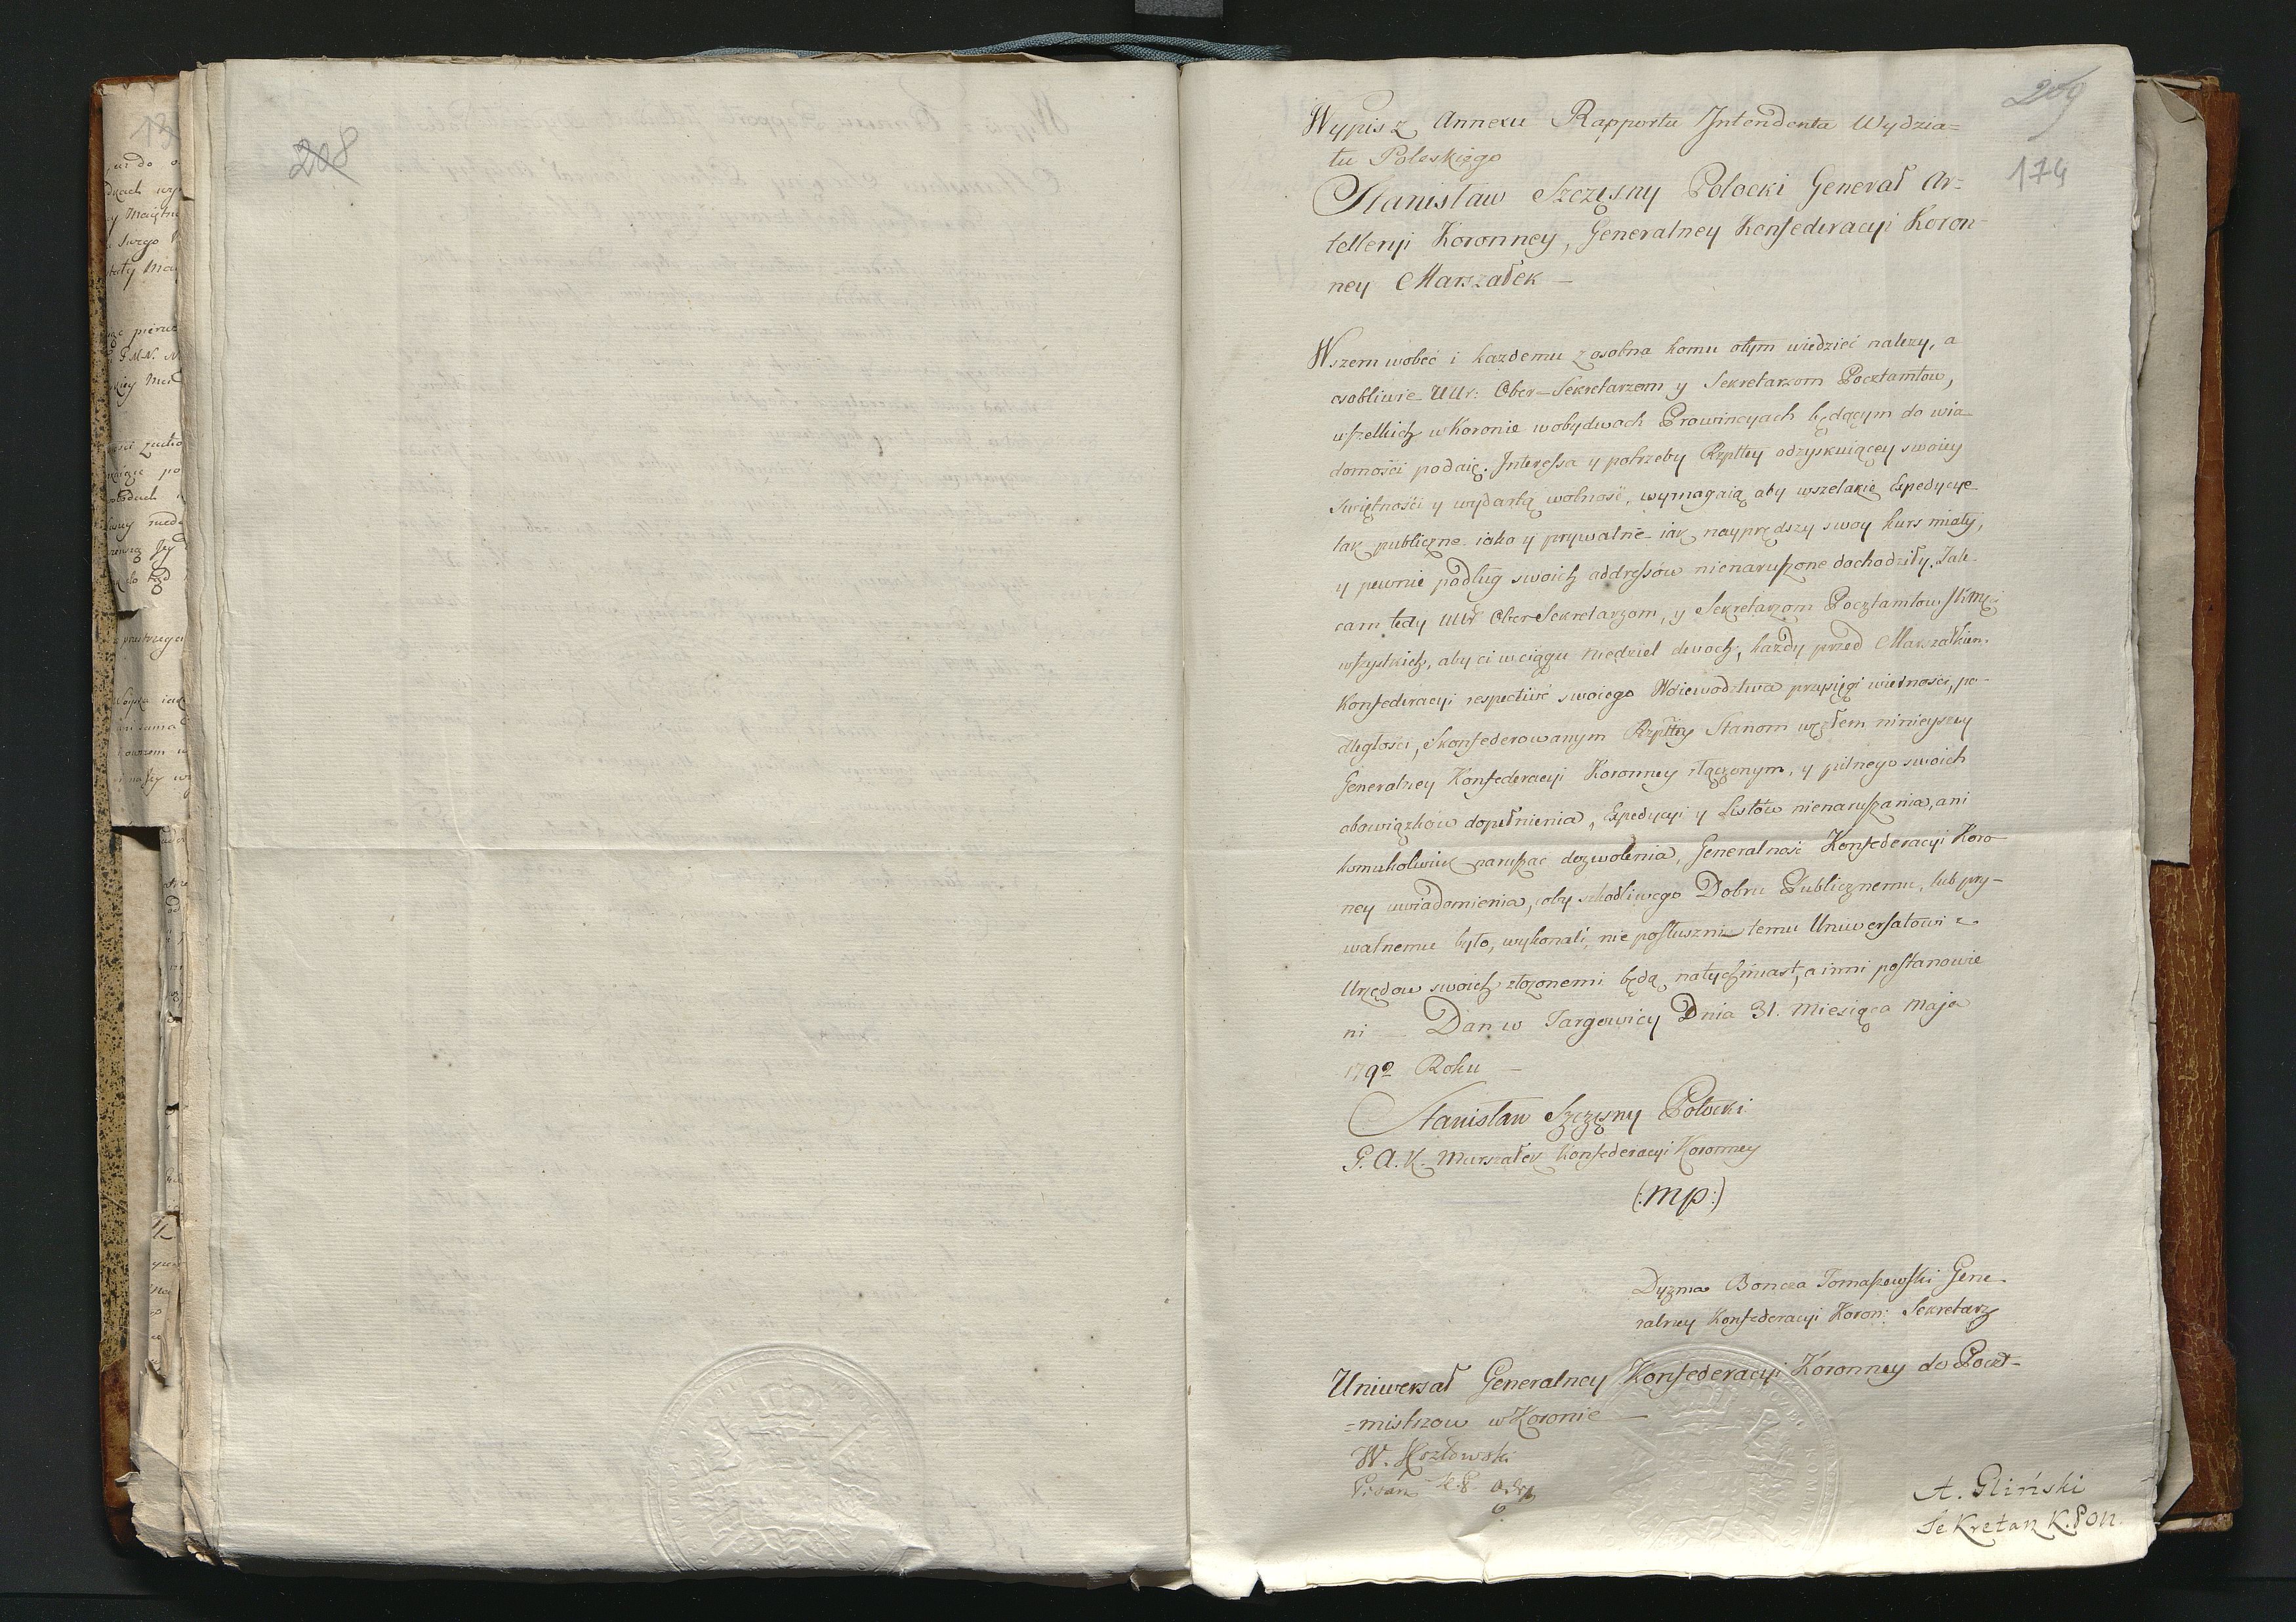 208
209
174
Wypis z Annexu Rapportu Intendenta Wydzia=
łu Poleskiego
Stanisław Szczęsny Potocki Generał Ar=
telleryi Koronney, Generalney Konfederacyi Koron
ney Marszałek —
Wszem wobec i każdemu z osobna komu otym wiedzieć należy, a
osobliwie UUr: Ober-Sekretarzom y Sekretarzom Pocztamtow,
wszelkich w Koronie wobydwoch Prowincyach będącym do wia
domości podaię. Interessa y potrzeby Rzpltey odzyskuiącey swoiey
Swiętności y wydartą wolność, wymagaią aby wszelakie Expedycye
tak publiczne iako y prywatne iak nayprędszy swoy kurs miały,
y pewnie podług swoich addressów nienaruszone dochodziły. Zale
cam tedy UUr Ober Sekretarzom, y Sekretarzom Pocztamtow
wszystkich, aby ci w ciągu niedziel dwoch, każdy przed Marszałkiem
Konfederacyi respectivé swoiego Woiewodztwa przysięgi wierności, po-
dległości, Skonfederowanym Rzpltey Stanom węzłem ninieyszey
Generalney Konfederacyi Koronney złączonym, y pilnego swoich
obowiązkow dopełnienia, Expedycyi y Listów nienaruszania, ani
komukolwiek naruszac dozwolenia, Generalność Konfederacyi Koro
ney uwiadomienia, coby szkodliwego Dobru Publicznemu, lub pry-
watnemu było, wykonali, nie posłuszni temu Uniwersałowi z
Urzędow swoich złożonemi będą natychmiast, a inni postanowie
ni — Dan w Targowicy Dnia 31. Miesiąca Maja
1792 Roku —
Stanisław Szczęsny Potocki
G. A. K. Marszałek Konfederacyi Koronney
(:mp:)
Dyzma Boncza Tomaszewski Gene
ralney Konfederacyi Koron: Sekretarz
Uniwersał Generalney Konfederacyi Koronney do Poczt-
=mistrzow w Koronie —
W. Kozłowski
A. Gliński
Sekretarz K. P. On.